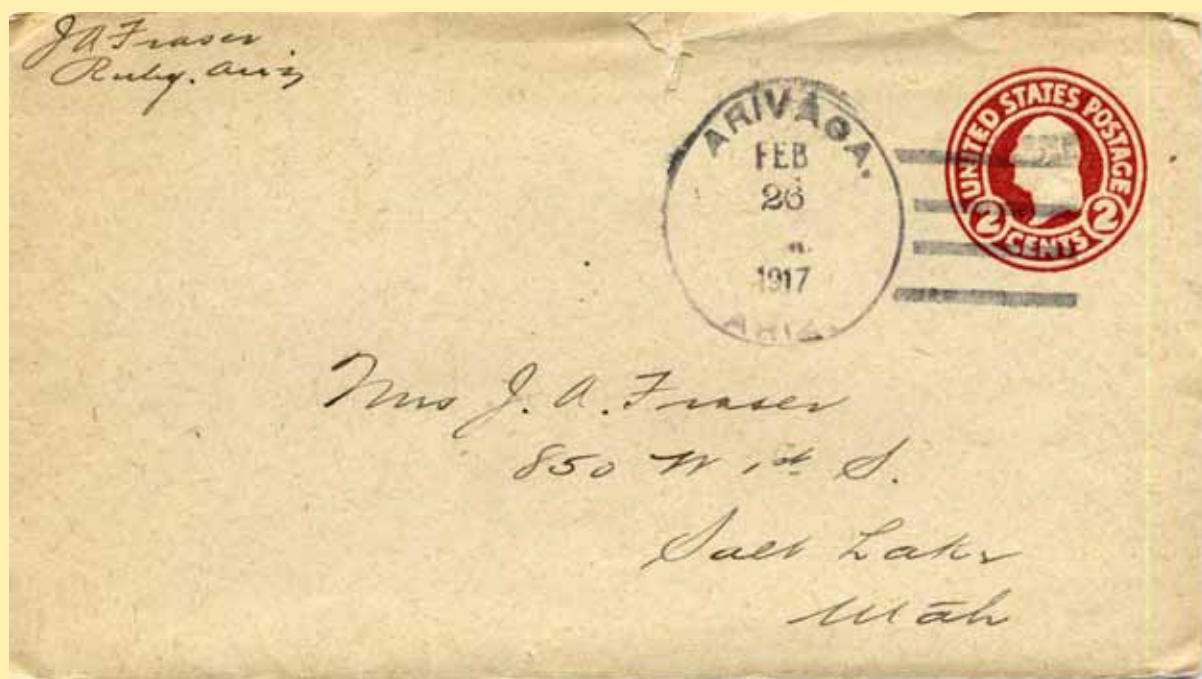 J A Fraser
Ruby. Ariz
ARIVACA.
FEB
26
1917
ARIZ.
UNITED STATES POSTAGE
2 CENTS 2
Mrs J. A. Fraser
850 W 1st S.
Salt Lake
Utah